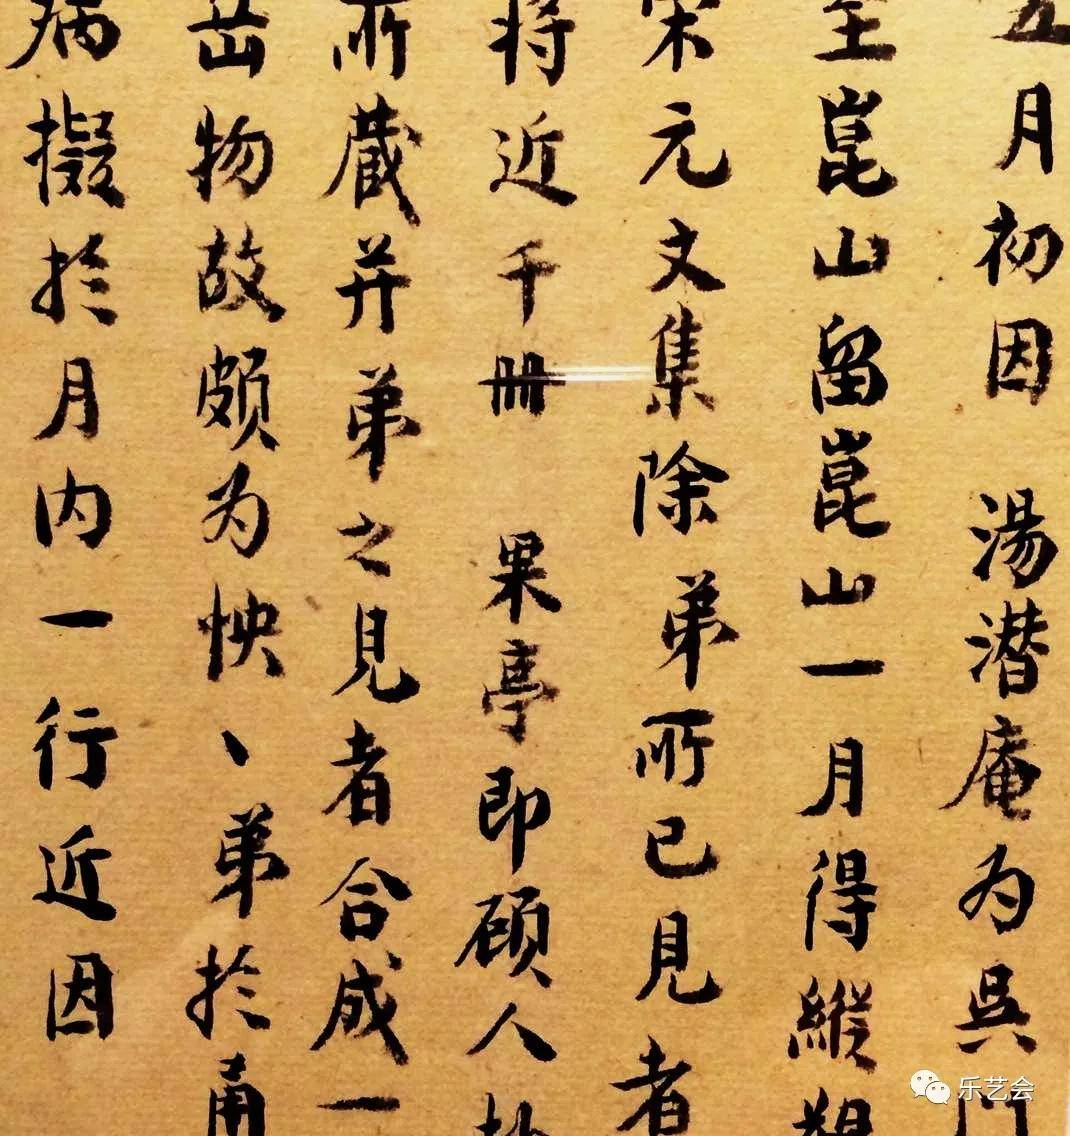 五月初因 湯潛庵為吳門
至崑山留崑山一月得縱觀
宋元文集除弟所已見者
將近千冊 果亭即頋人
所蔵并弟之見者合成一
物故頗為怏、弟於甫
病掇於月内一行近因
乐艺会